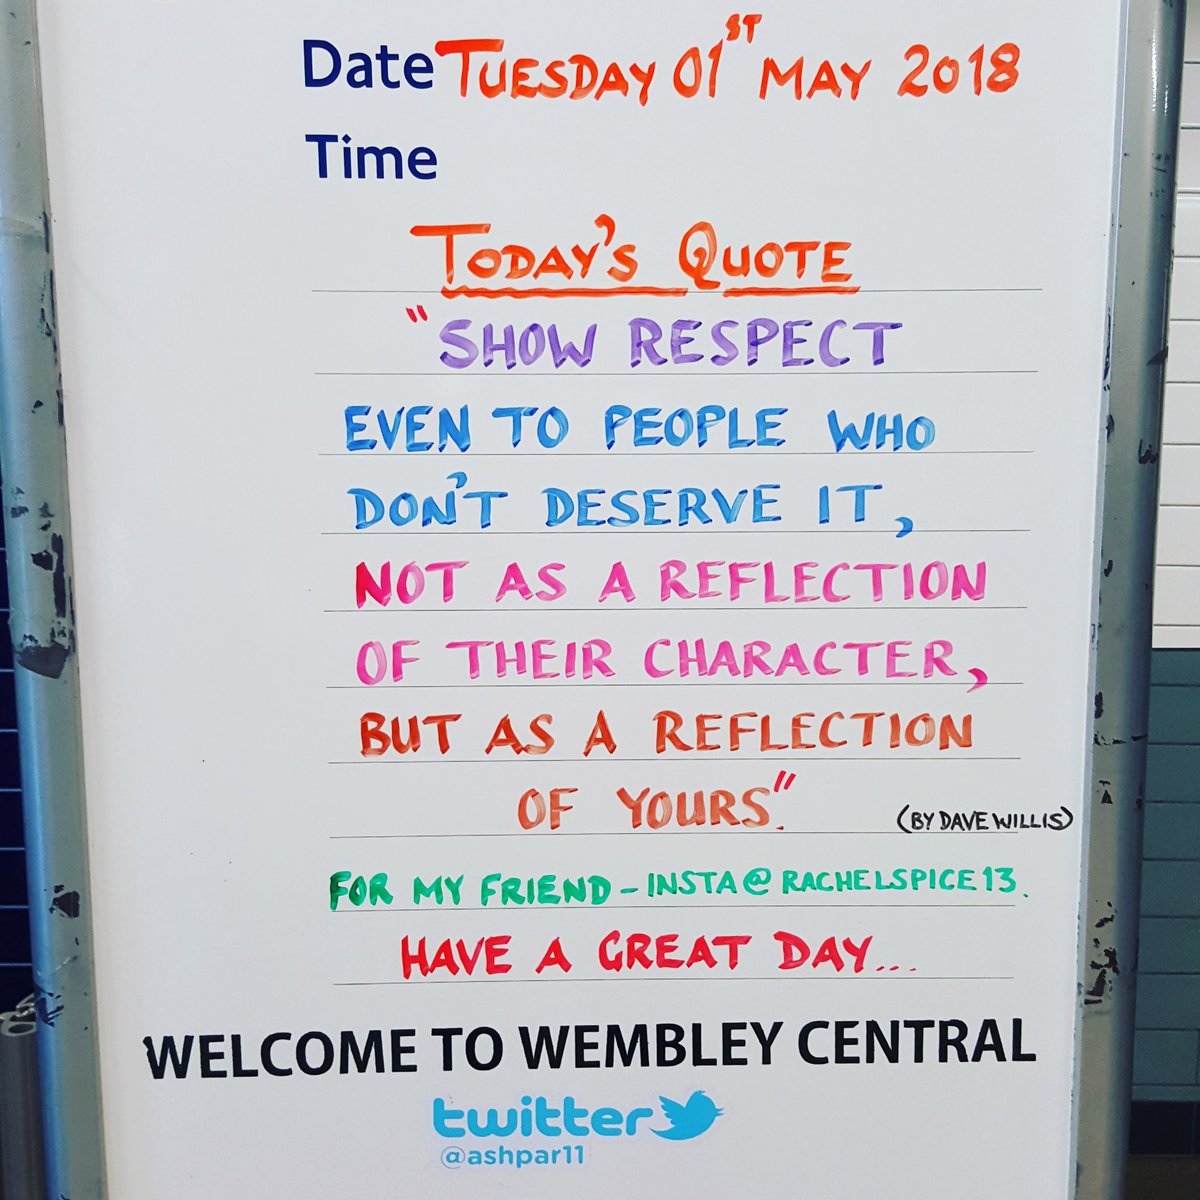 Date TUESDAY 01ST MAY 2018
Time
TODAY'S QUOTE
"SHOW RESPECT
EVEN TO PEOPLE WHO
DON'T DESERVE IT,
NOT AS A REFLECTION
OF THEIR CHARACTER,
BUT AS A REFLECTION
OF YOURS."
(BY DAVE WILLIS)
FOR MY FRIEND - INSTA@RACHELSPICE13.
HAVE A GREAT DAY...
WELCOME TO WEMBLEY CENTRAL
twitter
@ashpar11